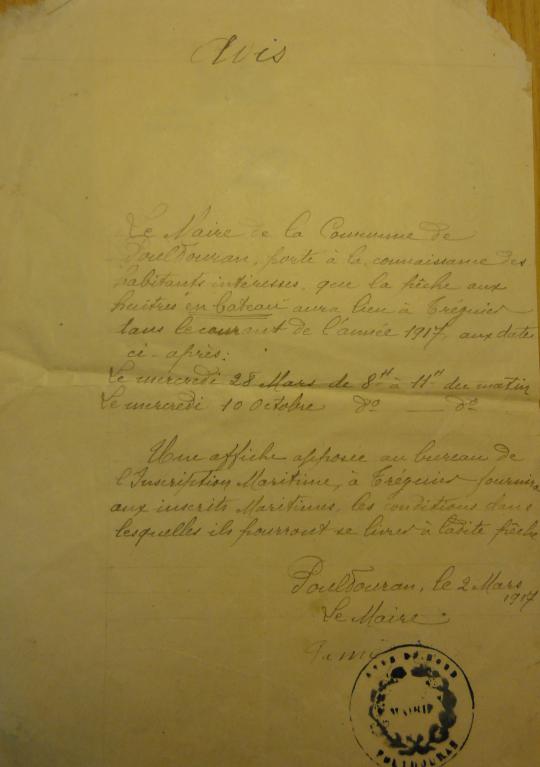 Avis
Le Maire de la Commune de
Pouldouran, porte à la connaissance des
habitants intéressés, que la pêche aux
huîtres en bateau aura lieu à Tréguier
dans le courant de l'année 1917, aux dates
ci-après:
Le mercredi 28 Mars de 8H à 11H du matin
Le mercredi 10 Octobre do — do
Une affiche apposée au bureau de
l'Inscription Maritime, à Tréguier fournira
aux inscrits Maritimes, les conditions dans
lesquelles ils pourront se livrer à ladite pêche
Pouldouran, le 2 Mars
1917
Le Maire
MAIRIE
POULDOURAN